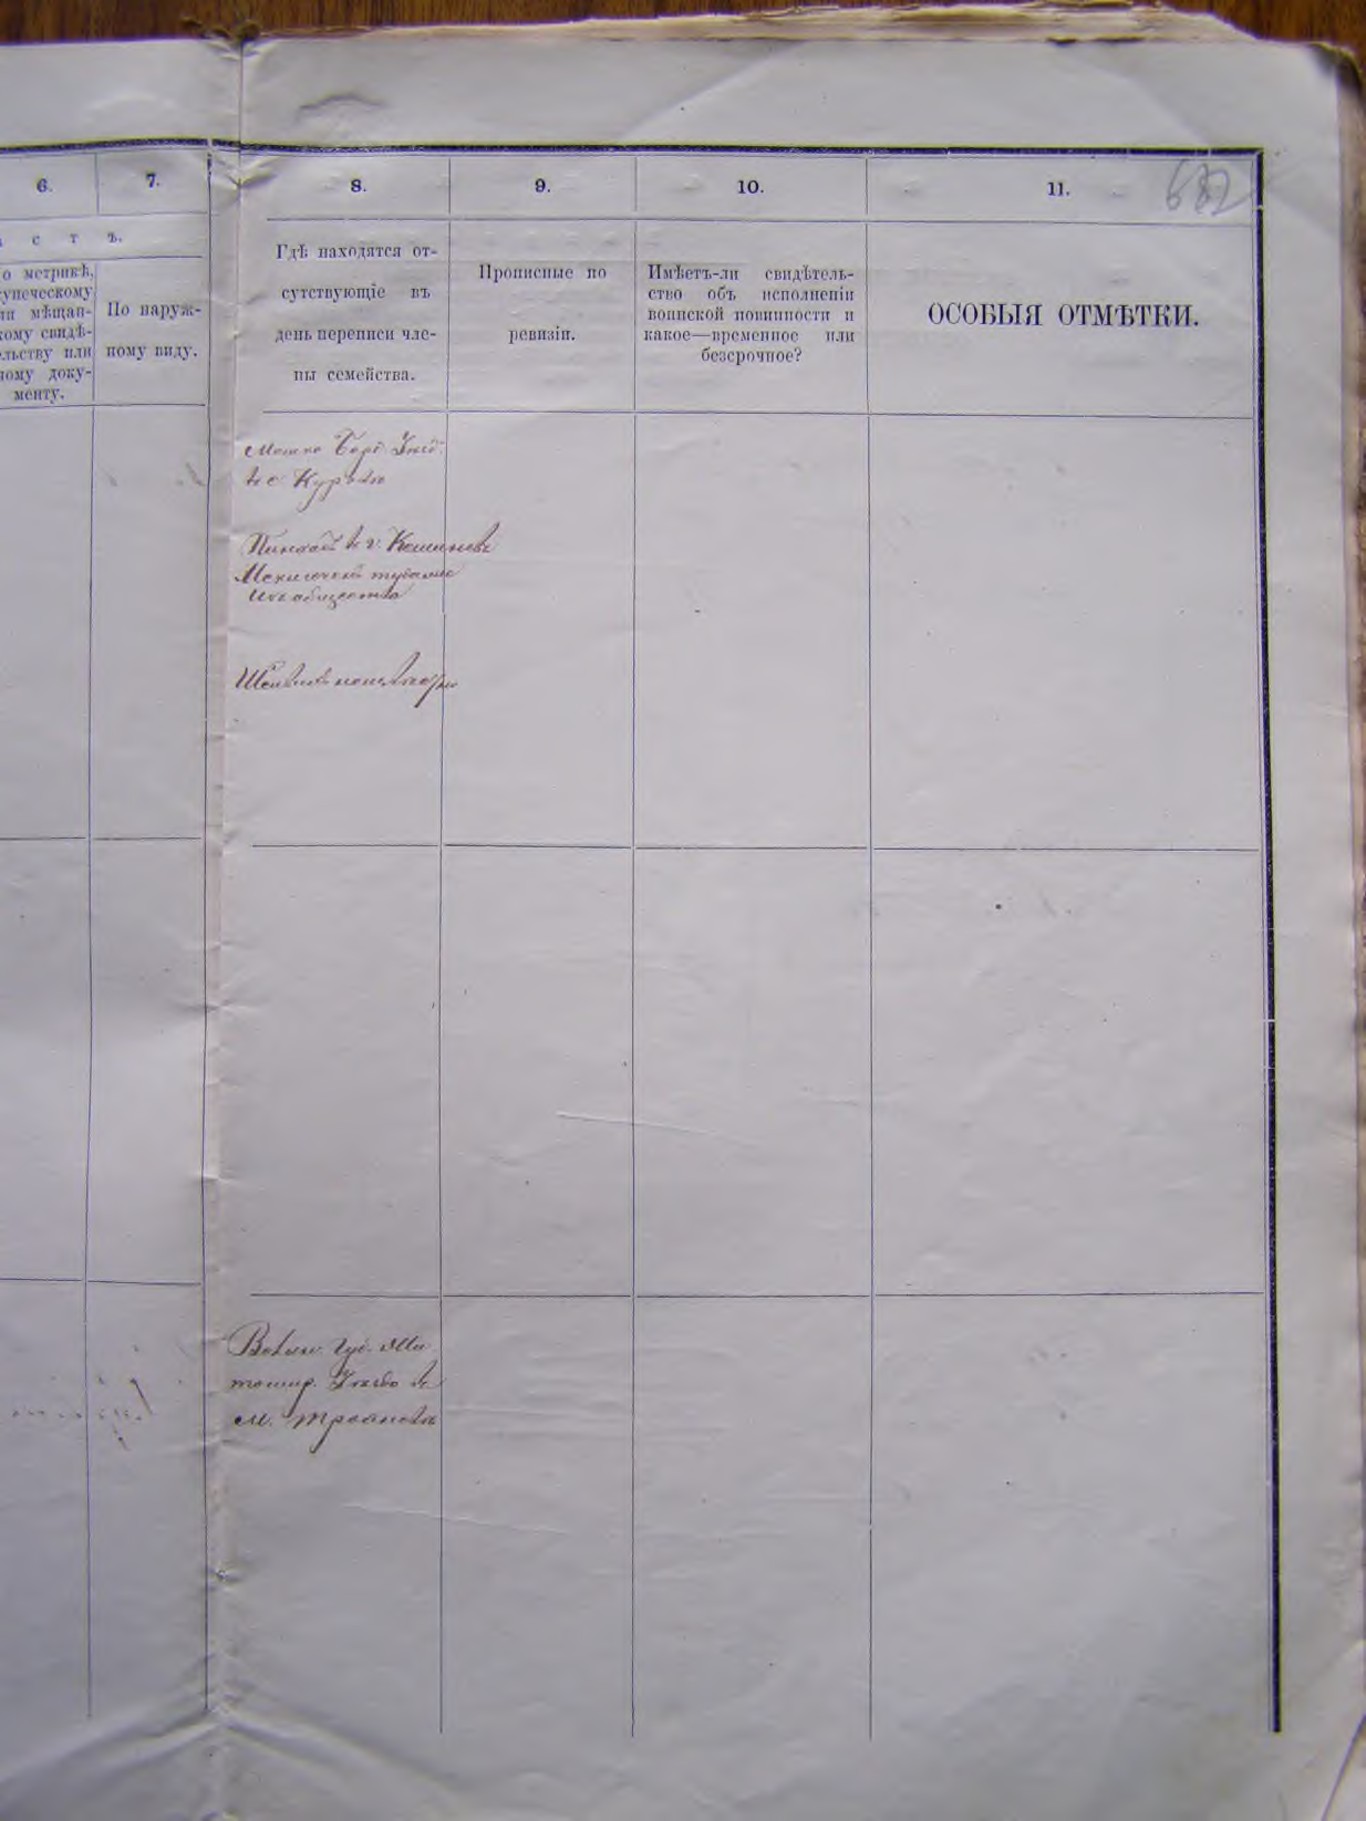 6.
7.
8.
9.
10.
11.
632
с т ъ.
о метрикѣ,
купеческому
ли мѣщан-
кому свидѣ-
ельству или
ному доку-
менту.
По наруж-
ному виду.
Гдѣ находятся от-
сутствующіе въ
день переписи чле-
ны семейства.
Прописные по
ревизіи.
Имѣетъ-ли свидѣтель-
ство объ исполненіи
воинской повинности и
какое—временное или
безсрочное?
ОСОБЫЯ ОТМѢТКИ.
Мошко
въ с.
въ г. Кишиневѣ
общества
Шен
Волын. губ. Жи
томир. уѣзда въ
м. Трояновѣ